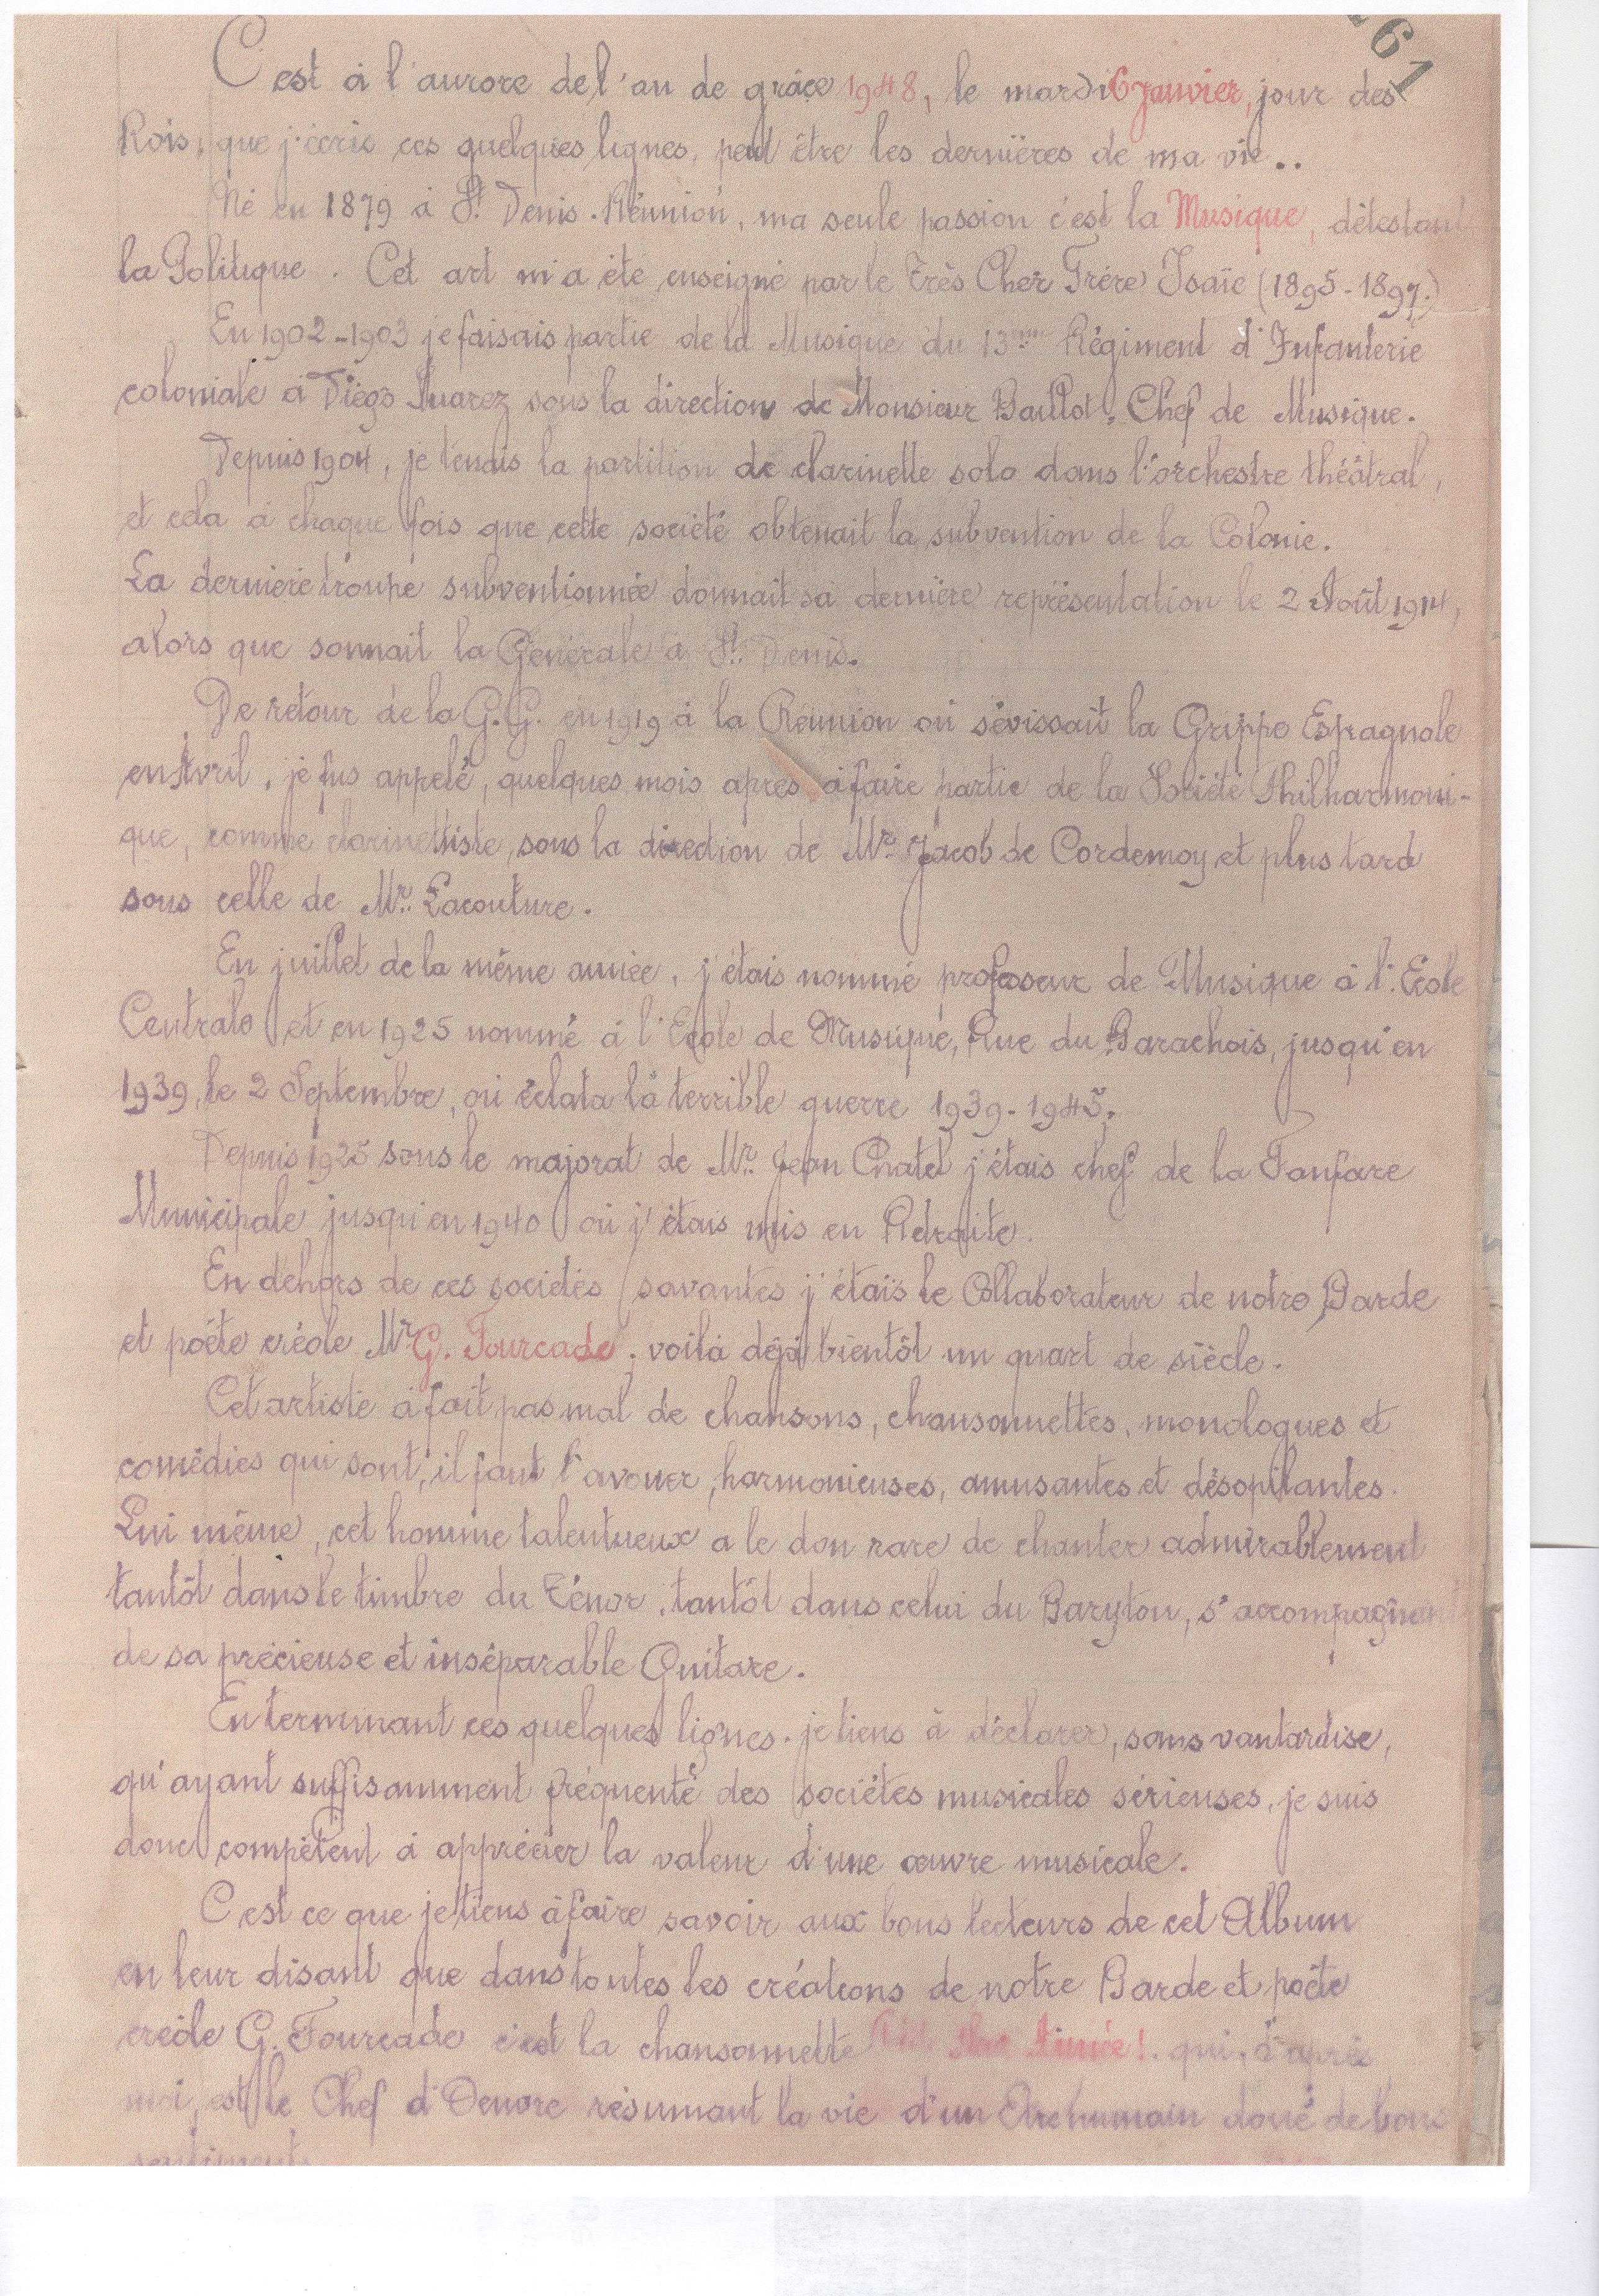 61
C'est à l'aurore de l'an de grâce 1948, le mardi 6 Janvier, jour des
Rois, que j'écris ces quelques lignes, peut être les dernières de ma vie..
Né en 1879 à St. Denis. Réunion, ma seule passion c'est la Musique, détestant
la Politique. Cet art m'a été enseigné par le Très Cher Frère Isaïe (1895-1897.)
En 1902-1903 je faisais partie de la Musique du 13ème Régiment d'Infanterie
coloniale à Diégo Suarez sous la direction de Monsieur Baillot, Chef de Musique.
Depuis 1904, je tenais la partition de clarinette solo dans l'orchestre théâtral,
et cela à chaque fois que cette société obtenait la subvention de la Colonie.
La dernière troupe subventionnée donnait sa dernière représentation le 2 Août 1914,
alors que sonnait la Générale à St. Denis.
De retour de la G.G. en 1919 à la Réunion où sévissait la Grippe Espagnole
en Avril, je fus appelé, quelques mois après à faire partie de la Société Philharmoni-
que, comme clarinettiste, sous la direction de Mr. Jacob de Cordemoy et plus tard
sous celle de Mr. Lacouture.
En juillet de la même année, j'étais nommé professeur de Musique à l'Ecole
Centrale et en 1925 nommé à l'Ecole de Musique, Rue du Barachois, jusqu'en
1939, le 2 Septembre, où éclata la terrible guerre 1939-1945.
Depuis 1925 sous le majorat de Mr. Jean Chatel j'étais chef de la Fanfare
Municipale jusqu'en 1940 où j'étais mis en Retraite.
En dehors de ces sociétés savantes j'étais le Collaborateur de notre Barde
et poète créole Mr G. Fourcade, voilà déjà bientôt un quart de siècle.
Cet artiste a fait pas mal de chansons, chansonnettes, monologues et
comédies qui sont, il faut l'avouer, harmonieuses, amusantes et désopilantes.
Lui même, cet homme talentueux a le don rare de chanter admirablement
tantôt dans le timbre du Ténor, tantôt dans celui du Baryton, s'accompagnant
de sa précieuse et inséparable Guitare.
En terminant ces quelques lignes, je tiens à déclarer, sans vantardise,
qu'ayant suffisamment fréquenté des sociétés musicales sérieuses, je suis
donc compétent à apprécier la valeur d'une œuvre musicale.
C'est ce que je tiens à faire savoir aux bons lecteurs de cet Album
en leur disant que dans toutes les créations de notre Barde et poète
créole G. Fourcade c'est la chansonnette Aimée! qui, d'après
moi, est le Chef d'Oeuvre résumant la vie d'un Etre humain doué de bons
sentiments